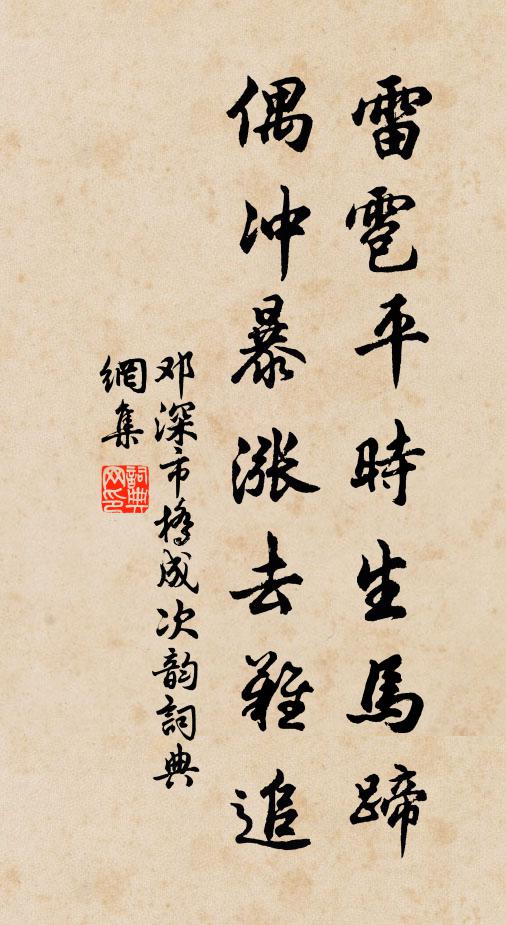 雷雹平時生馬蹄
偶冲暴漲去難追
邓深市橋成次韵詞典
網集
詞典
网印